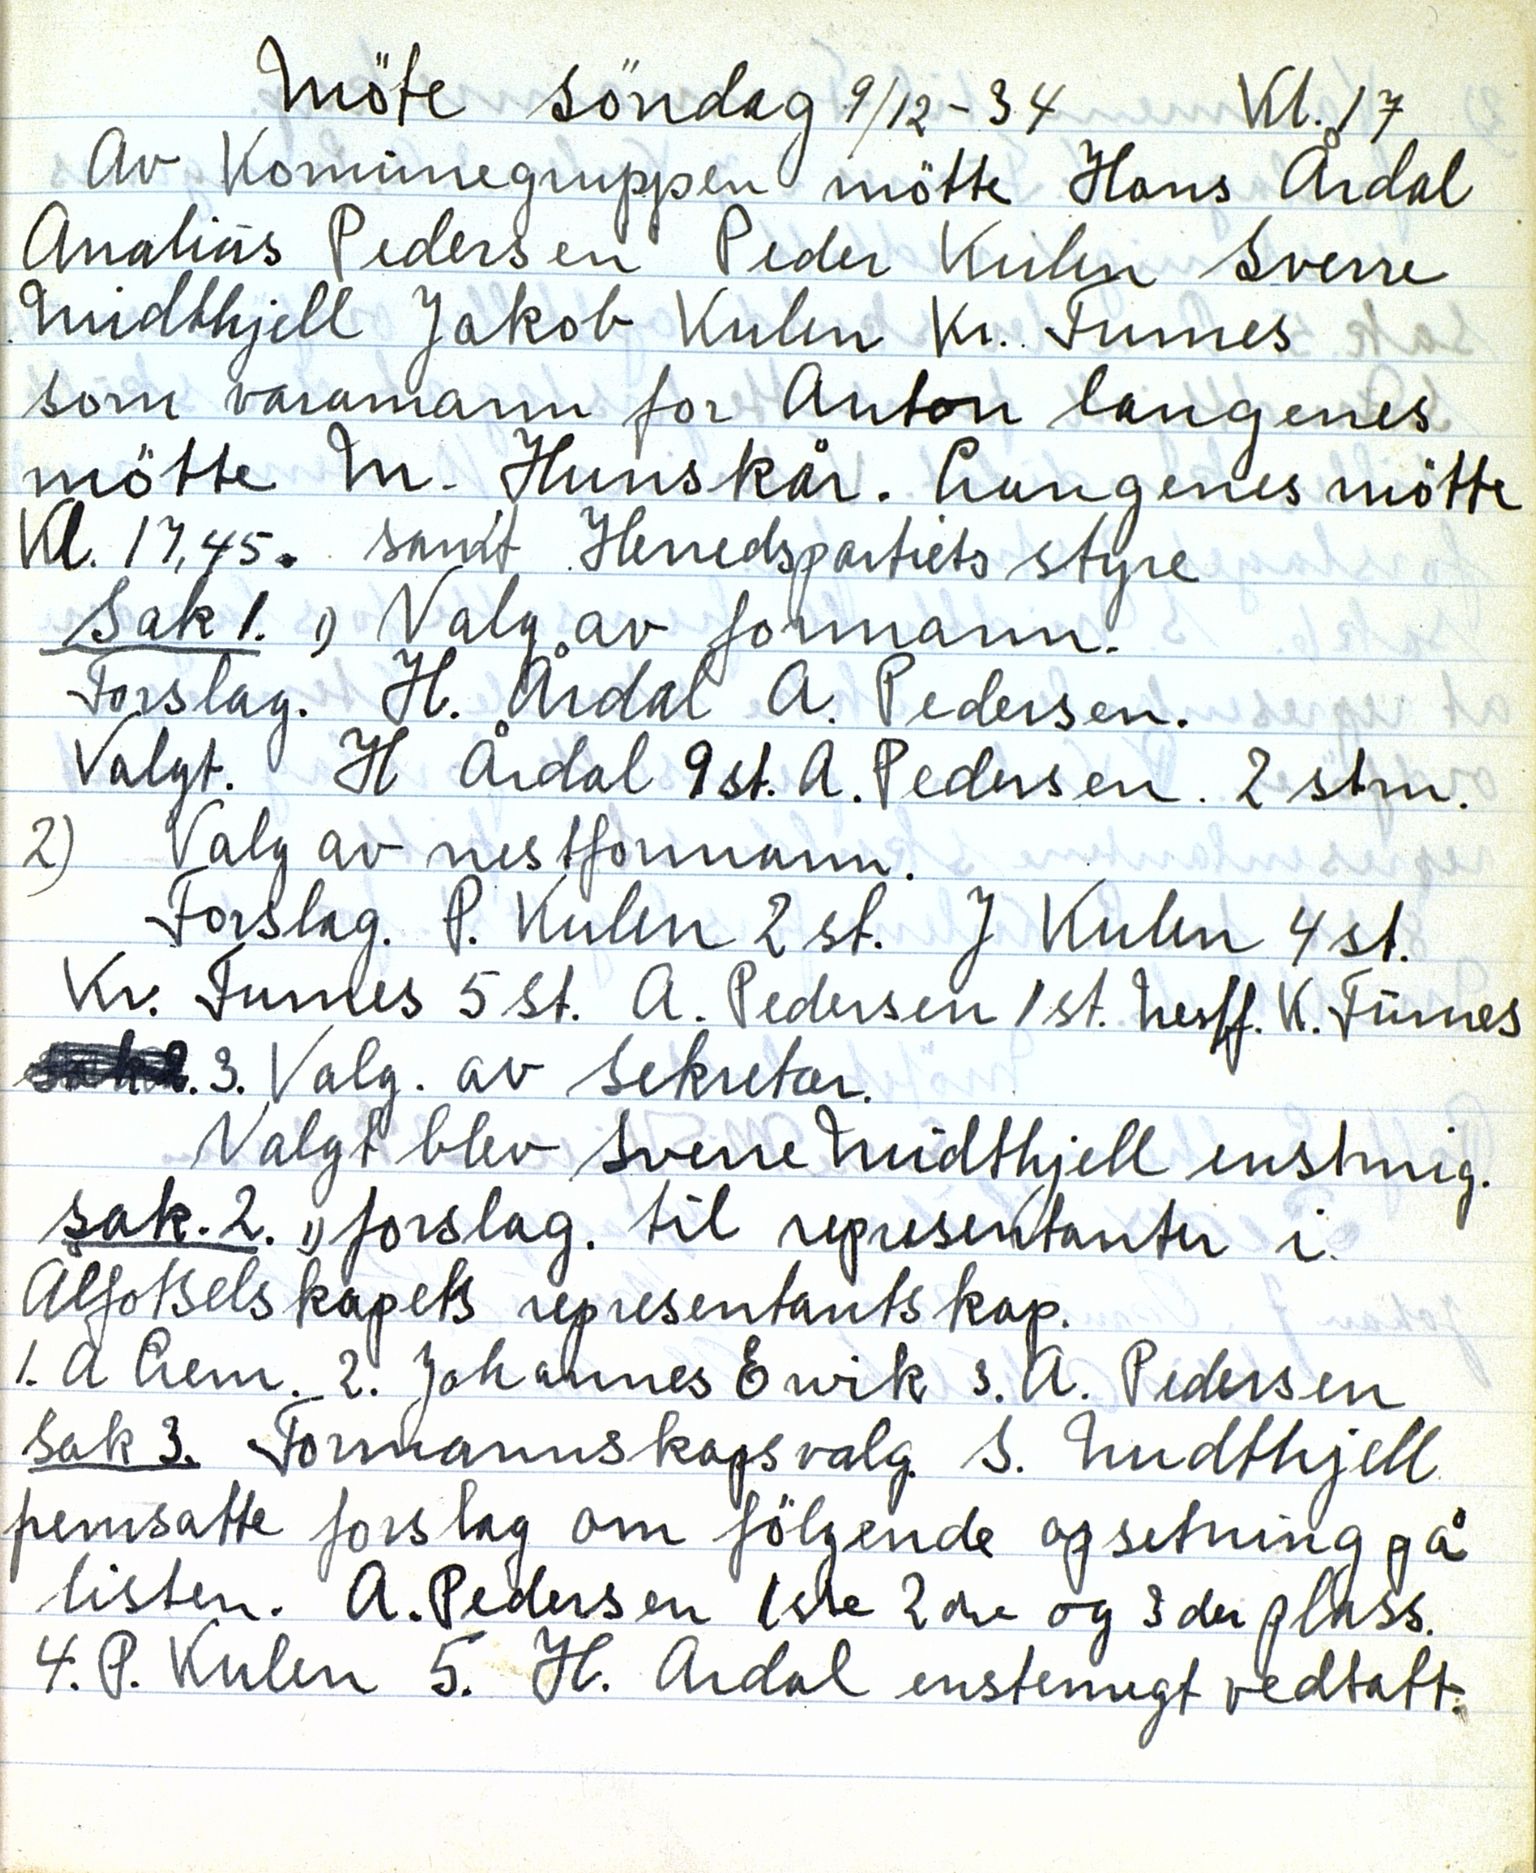 Möte söndag 9/12-34 Kl. 17
Av Komünegruppen mötte Hans Årdal
Analiäs Pedersen Peder Kulen Sverre
Midthjell Jakob Kulen Kr. Furnes
som varamann for Anton Langenes
mötte M. Hunskår. Langenes mötte
Kl. 17,45. samt Herredspartiets styre
Sak 1. 1) Valg av formann.
Forslag. H. Årdal A. Pedersen.
Valgt. H Årdal 9 st. A. Pedersen. 2 stm.
2) Valg av nestformann.
Forslag. P. Kulen 2 st. J Kulen 4 st.
Kr. Furnes 5 st. A. Pedersen 1 st. Nestf. K. Fürnes
3. Valg. av Sekretær.
Valgt blev Sverre Midthjell enstmig.
Sak. 2. 1) forslag. til representanter i
Ålfotselskapets representantskap.
1. A Lem. 2. Johannes Ervik 3. A. Pedersen
Sak 3. Formannskapsvalg S. Midthjell
fremsatte forslag om fölgende opsetning på
listen. A. Pedersen 1ste 2dre og 3der plass.
4. P. Kulen 5. H. Ardal enstemigt vedtatt.